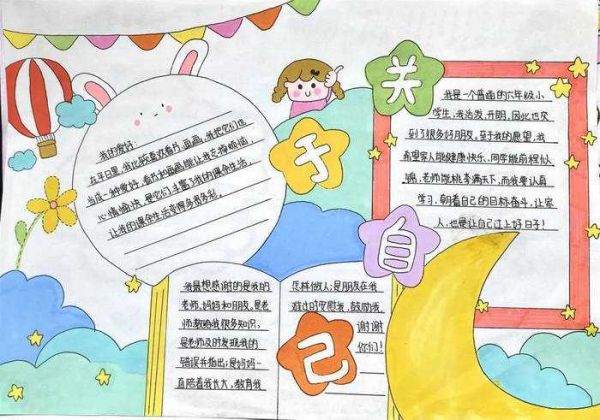 关于自己
我的爱好:
在平日里,我比较喜欢看书、画画,我把它们也
当成一种爱好,看书和画画能让我忘掉烦恼,
心情愉快,是它们丰富了我的课余生活,
让我的课余生活变得多姿多彩。
我是一个普通的六年级小
学生,我活发、开朗,因此也交
到了很多好朋友,至于我的愿望,我
希望家人能健康快乐,同学能前程似
锦,老师能桃李满天下,而我要认真
学习,朝着自己的目标奋斗,让家
人,也要让自己过上好日子!
我最想感谢的是我的
老师,妈妈和朋友,是老
师教我很多知识,
是老师及时发现我的
错误并指出;是妈妈一
直陪着我长大,教育我
怎样做人;是朋友在我
难过时安慰我,鼓励我
谢谢
你们!